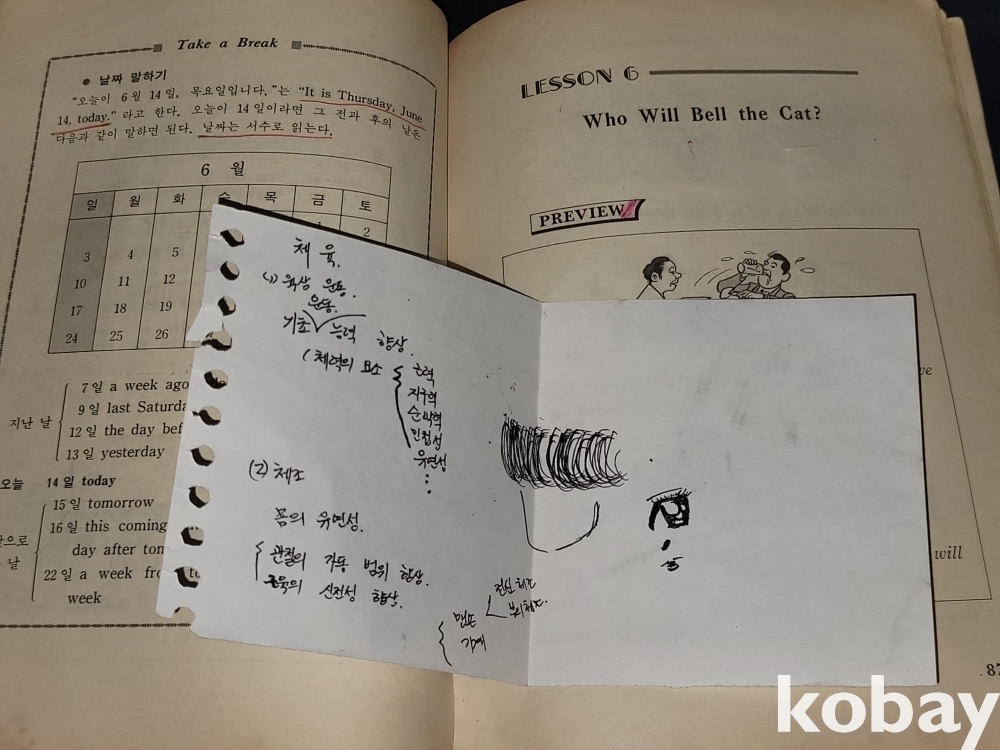 Take a Break
● 날짜 말하기
"오늘이 6월 14일, 목요일입니다."는 "It is Thursday, June
14, today."라고 한다. 오늘이 14일이라면 그 전과 후의 날은
다음과 같이 말하면 된다. 날짜는 서수로 읽는다.
6 월
일 월 화 수 목 금 토
1 2
3 4 5
10 11 12
17 18 19
24 25 26
지난 날
7일 a week ago
9일 last Saturda
12일 the day bef
13일 yesterday
오늘 14일 today
15일 tomorrow
16일 this coming
day after tom
22일 a week fro
week
LESSON 6
Who Will Bell the Cat?
PREVIEW
will
87
체육.
(1) 육상 운동.
운동.
기초 능력 향상.
(체력의 요소
근력
지구력
순발력
민첩성
유연성
(2) 체조
몸의 유연성.
관절의 가동 범위 향상.
근육의 신전성 향상.
맨손
전신체조
부위체조.
기계
kobay